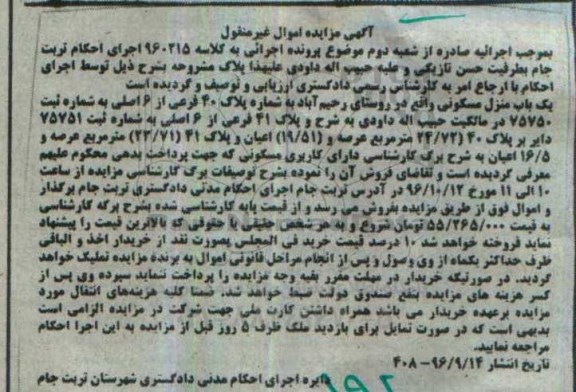 آگهی مزایده اموال غیرمنقول
بموجب اجرائیه صادره از شعبه دوم موضوع پرونده اجرائی به کلاسه ۹۶۰۲۱۵ اجرای احکام تربت
جام بطرفیت حسن نازیکی و علیه حبیب اله داودی علیهذا پلاک مشروحه بشرح ذیل توسط اجرای
احکام با ارجاع امر به کارشناس رسمی دادگستری ارزیابی و توصیف و گردیده است
یک باب منزل مسکونی واقع در روستای رحیم‌آباد به شماره پلاک ۴۰ فرعی از ۶ اصلی به شماره ثبت
۷۵۷۵۰ در مالکیت حبیب اله داودی به شرح و پلاک ۴۱ فرعی از ۶ اصلی به شماره ثبت ۷۵۷۵۱
دایر بر پلاک ۴۰ (۲۴/۷۲ مترمربع عرصه و (۱۹/۵۱) اعیان و پلاک ۴۱ (۲۳/۷۱) مترمربع عرصه و
۱۶/۵ اعیان به شرح برگ کارشناسی دارای کاربری مسکونی که جهت پرداخت بدهی محکوم علیهم
معرفی گردیده است و تقاضای فروش آن را نموده بشرح توصیفات برگ کارشناسی مزایده از ساعت
۱۰ الی ۱۱ مورخ ۹۶/۱۰/۱۲ در آدرس تربت جام اجرای احکام مدنی دادگستری تربت جام برگذار
و اموال فوق از طریق مزایده بفروش می رسد و از قیمت پایه کارشناسی شده بشرح برگه کارشناسی
به قیمت ۵۵/۲۶۵/۰۰۰ تومان شروع و به هر شخص حقیقی یا حقوقی که بالاترین قیمت را پیشنهاد
نماید فروخته خواهد شد ۱۰ درصد قیمت خرید فی المجلس بصورت نقد از خریدار اخذ و الباقی
ظرف حداکثر یکماه از وی وصول و پس از انجام مراحل قانونی اموال به برنده مزایده تملیک خواهد
گردید. در صورتیکه خریدار در مهلت مقرر بقیه وجه مزایده را پرداخت ننماید سپرده وی پس از
کسر هزینه های مزایده بنفع صندوق دولت ضبط خواهد شد. ضمنا کلیه هزینه‌های انتقال مورد
مزایده برعهده خریدار می باشد همراه داشتن کارت ملی جهت شرکت در مزایده الزامی است
بدیهی است که در صورت تمایل برای بازدید ملک ظرف ۵ روز قبل از مزایده به این اجرا احکام
مراجعه نمایید.
تاریخ انتشار ۹۶/۹/۱۴-۴۰۸
دایره اجرای احکام مدنی دادگستری شهرستان تربت جام